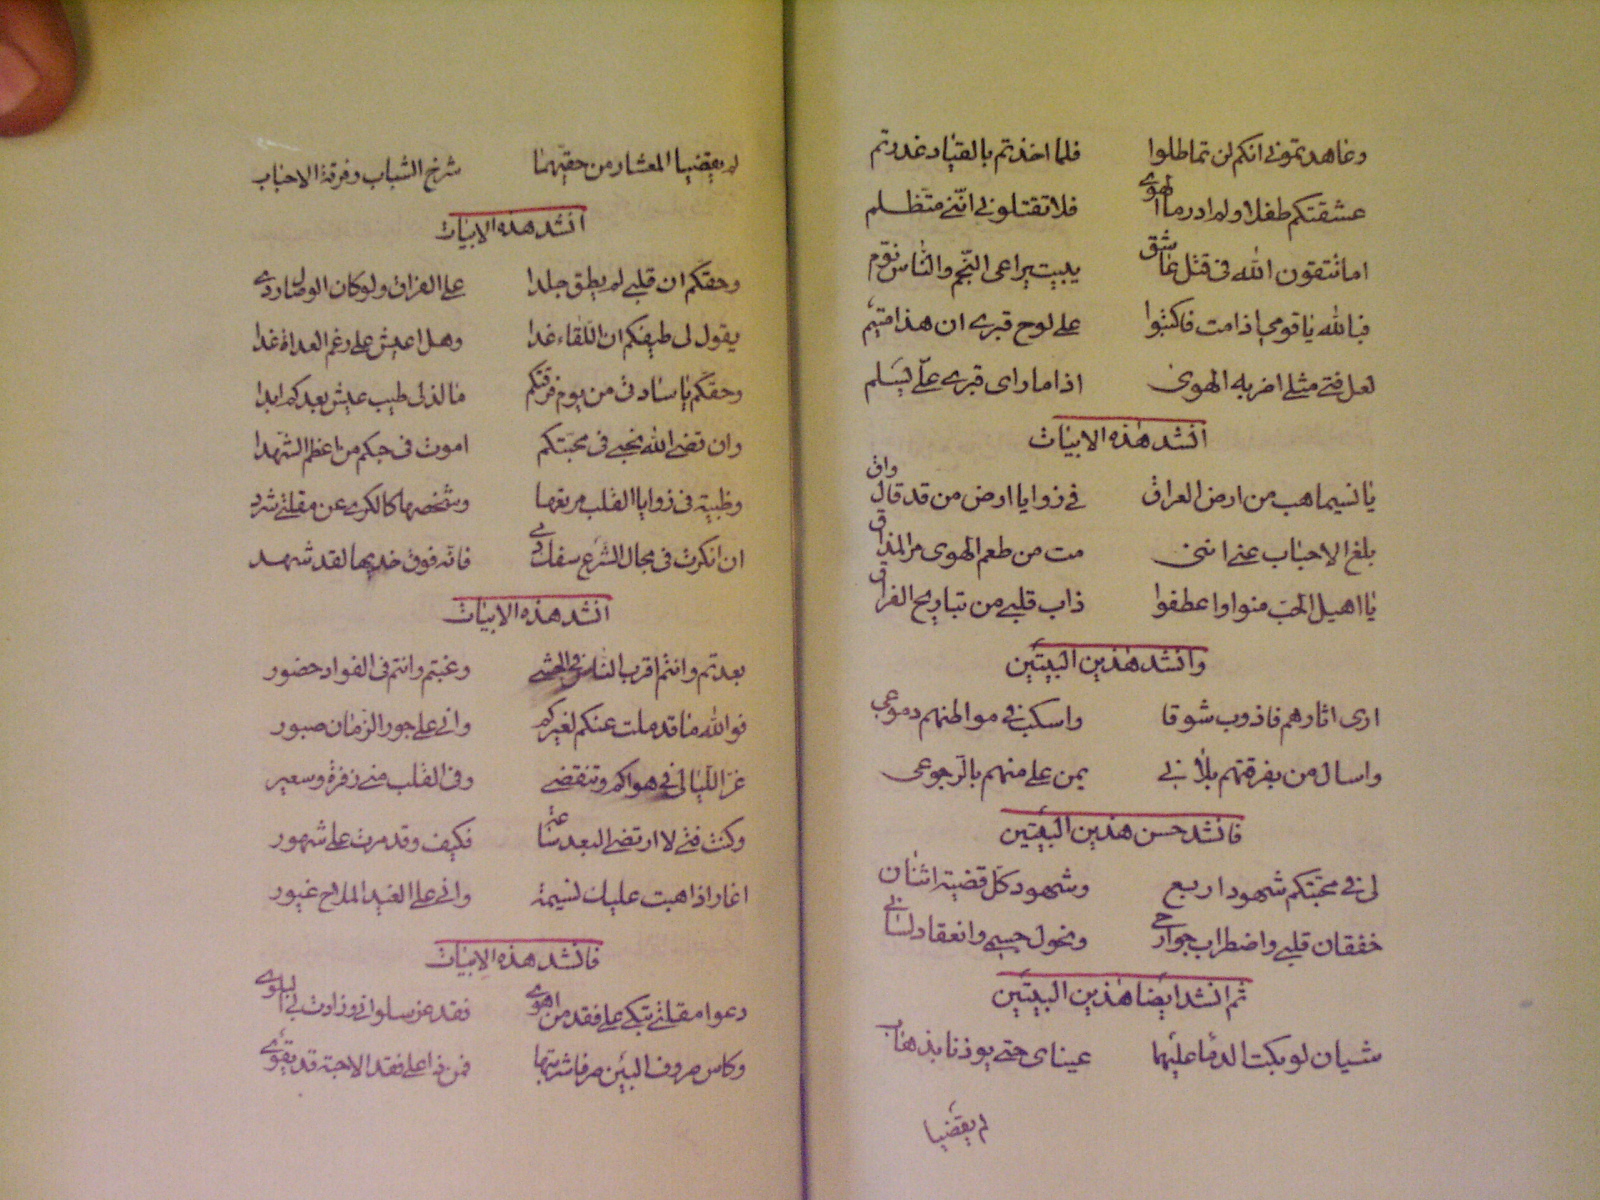 وعاهدتموني انكم لن تماطلوا فلما اخذتم بالقياد غدرتم
عشقتكم طفلا ولم ادر ما الهوى فلا تقتلوني انني متظلم
اما تتقون الله في قتل عاشق يبيت يراعي النجم والناس نوم
فبالله يا قومي اذا مت فاكتبوا على لوح قبري ان هذا متيم
لعل فتى مثلي اضر به الهوى اذا ما راى قبري علي يسلم
انشد هذه الابيات
يا نسيما هب من ارض العراق في زوايا ارض من قد قال واق
بلغ الاحباب عني انني مت من طعم الهوى مر المذاق
يا اهيل الحب منوا واعطفوا ذاب قلبي من تباريح الفراق
وانشد هذين البيتين
ارى اثارهم فاذوب شوقا واسكب في مواطنهم دموعي
واسال من بفرقتهم بلاني يمن علي منهم بالرجوعي
فانشد حسن هذين البيتين
لي في محبتكم شهود اربع وشهود كل قضية اثنان
خفقان قلبي واضطراب جوارحي ونحول جسمي وانعقاد لساني
ثم انشد ايضا هذين البيتين
شيان لو بكت الدما عليهما عيناي حتى يوذنا بذهاب
لم يقضيا
لم يقضيا المعشار من حقيهما شرخ الشباب وفرقة الاحباب
انشد هذه الابيات
وحقكم ان قلبي لم يطق جلدا على الفراق ولو كان الوصال ردى
يقول لي طيفكم ان اللقاء غدا وهل اعيش على رغم العداة غدا
وحقكم يا سادتي من يوم فرقتكم ما لذ لي طيب عيش بعدكم ابدا
وان قضى الله نحبي في محبتكم اموت في حبكم من اعظم الشهدا
وظبية في زوايا القلب مربعها وشخصها كالكرى عن مقلتي شرد
ان انكرت في مجال الشرع سفك دمي فانه فوق خديها لقد شهد
انشد هذه الابيات
بعدتم وانتم اقرب الناس في الحشى وغبتم وانتم في الفواد حضور
فوالله ما قد ملت عنكم لغيركم واني على جور الزمان صبور
تمر الليالي في هواكم وتنقضي وفي القلب مني زفرة وسعير
وكنت فتى لا ارتضي البعد ساعة فكيف وقد مرت علي شهور
اغار اذا هبت عليك نسيمة واني على الغيد الملاح غيور
فانشد هذه الابيات
دعوا مقلتي تبكي على فقد من اهوى فقد عز سلواني وزادت بي البلوى
وكاس صروف البين صرفا شربتها فمن ذا على فقد الاحبة قد يقوى